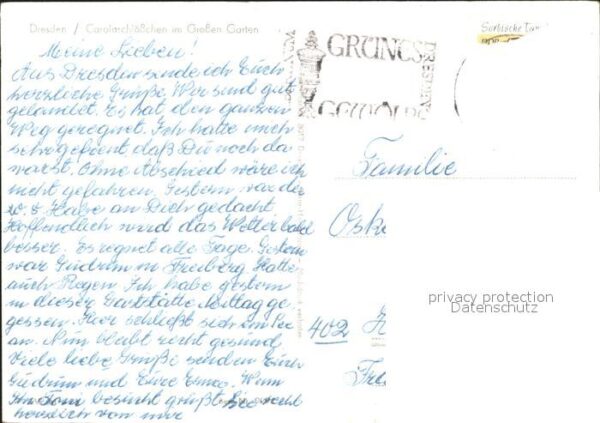 Dresden / Carolaschlößchen im Großen Garten
Meine Lieben!
Aus Dresden sende ich Euch
herzliche Grüße. Wir sind gut
gelandet. Es hat den ganzen
Weg geregnet. Ich hatte mich
sehr gefreut, daß Du noch da
warst. Ohne Abschied wäre ich
nicht gefahren. Gestern war der
10. 8. Habe an Dich gedacht
Hoffendlich wird das Wetter bald
besser. Es regnet alle Tage. Gestern
war Gudrun in Freiberg. Hatte
auch Regen. Ich habe gestern
in dieser Gaststätte Mittag ge
gessen. Hier schließt sich ein See
an. Nun bleibt recht gesund
Viele liebe Grüße senden Euch
Gudrun und Eure
Ihr besucht grüßt Sie recht
herzlich von mir
GRÜNES
GEWÖLBE
DRESDEN
Familie
Osk
402 H
privacy protection
Datenschutz